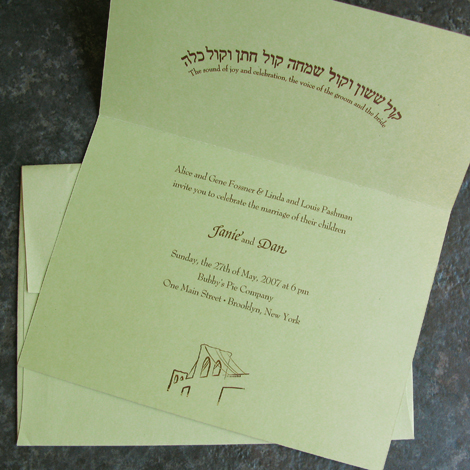 קול ששון וקול שמחה קול חתן וקול כלה
The sound of joy and celebration, the voice of the groom and the bride
Alice and Gene Fossner & Linda and Louis Pashman
invite you to celebrate the marriage of their children
Janie and Dan
Sunday, the 27th of May, 2007 at 6 pm
Bubby's Pie Company
One Main Street • Brooklyn, New York